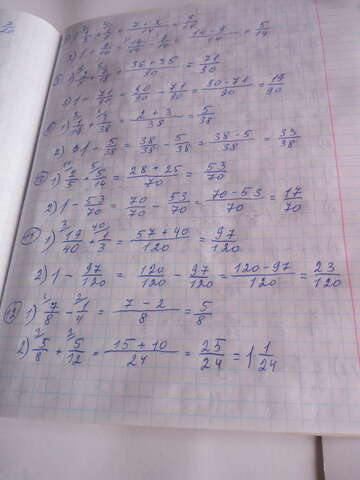 2) 1 - 9/14 = 14/14 - 9/14 = (14-9)/14 = 5/14
= (36+35)/90 = 71/90
2) 1 - 71/90 = 90/90 - 71/90 = (90-71)/90 = 19/90
1) 1/19 + 3/38 = (2+3)/38 = 5/38
2) 1 - 5/38 = 38/38 - 5/38 = (38-5)/38 = 33/38
1) 2/5 + 5/14 = (28+25)/70 = 53/70
2) 1 - 53/70 = 70/70 - 53/70 = (70-53)/70 = 17/70
11) 1) 19/40 + 1/3 = (57+40)/120 = 97/120
2) 1 - 97/120 = 120/120 - 97/120 = (120-97)/120 = 23/120
12) 1) 7/8 - 1/4 = (7-2)/8 = 5/8
2) 5/8 + 5/12 = (15+10)/24 = 25/24 = 1 1/24